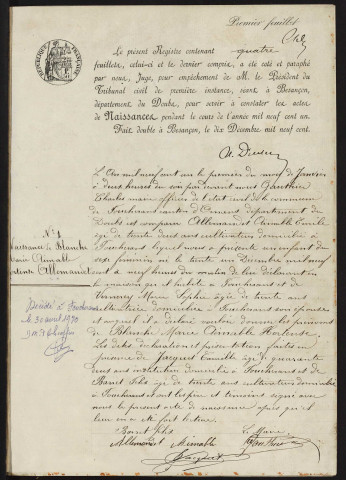 Premier feuillet
Le présent Registre contenant quatre
feuillets, celui-ci et le dernier compris, a été coté et paraphé
par nous, Juge, pour empêchement de M. le Président du
Tribunal civil de première instance, séant à Besançon,
département du Doubs, pour servir à constater les actes
de Naissances pendant le cours de l'année mil neuf cent un.
Fait double à Besançon, le dix Décembre mil neuf cent.
RÉPUBLIQUE FRANÇAISE
L'an mil neuf cent un le premier du mois de Janvier
à deux heures du soir par devant nous Gauthier
Charles maire officier de l'état civil de la commune
de Fouchrans canton d' département du
Doubs est comparu Allemand Aimable Emile
âgé de trente deux ans cultivateur domicilié à
lequel nous a présenté un enfant du
sexe féminin né le trente un Décembre mil neuf
cent à neuf heures du matin de lui déclarant en
la maison qu'il habite à et de
Marie Sophie âgée de trente ans
cultivatrice domiciliée à son épouse
et auquel il a déclaré vouloir donner les prénoms
de Blanche Marie Aimable Hortense.
Les dites déclaration et présentation faites en
présence de Jacques Emile âgé de quarante
deux ans instituteur domicilié à et de
âgé de trente ans cultivateur domicilié
à et ont les père et témoins signé avec
nous le présent acte de naissance après qu'il
leur en a été fait lecture.
Le Maire
Allemand Aimable
Jacques
N° 1
Naissance de Blanche
Marie Aimable
Hortense Allemand
Décédée à
le 30 avril 1970